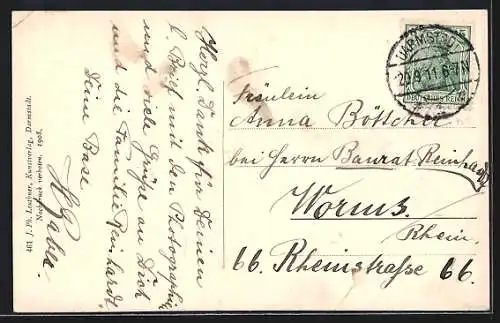 461 J. Ph. Leuthner, Kunstverlag, Darmstadt.
Nachdruck verboten. 1908.
Herzl. Dank für Deinen
l. Brief mit den Photographien
und viele Grüße an Dich
und die Familie
Deine Base
DARMSTADT
20.9.11. 6-7N
DEUTSCHES REICH
Fräulein
Anna Böttcher
bei Herrn Baurat Reinhardt
Worms.
Rhein.
66. Rheinstraße 66.